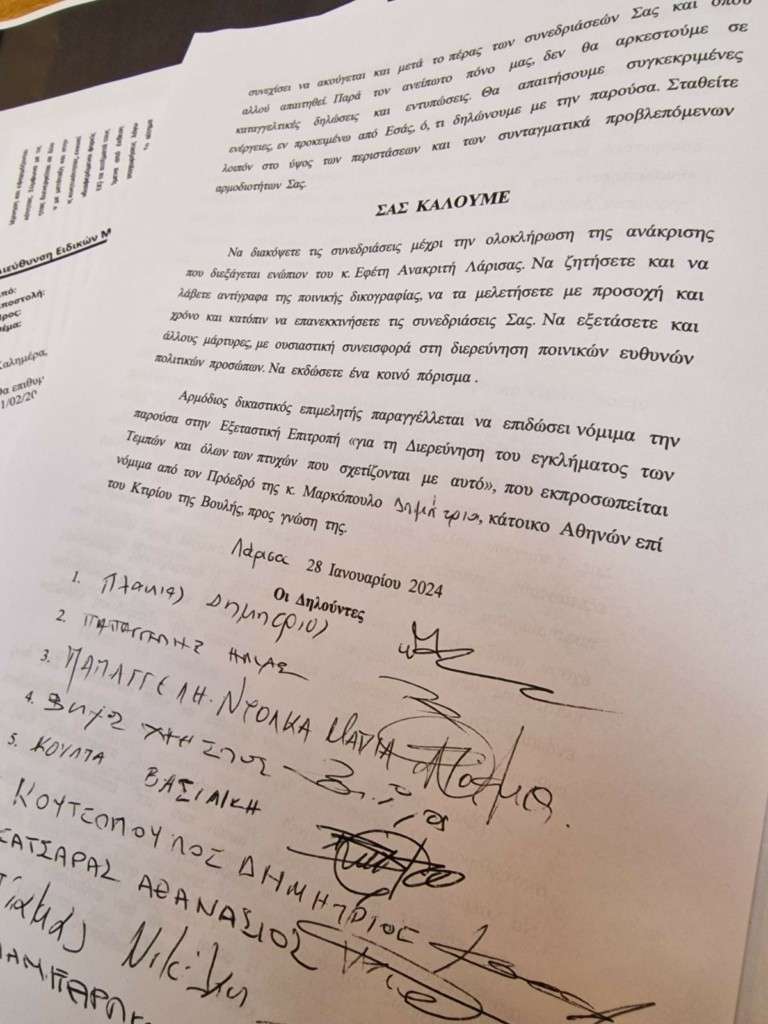 συνεχίσει να ακούγεται και μετά το πέρας των συνεδριάσεών Σας και όπου
αλλού απαιτηθεί. Παρά τον ανείπωτο πόνο μας, δεν θα αρκεστούμε σε
καταγγελτικές δηλώσεις και εντυπώσεις. Θα απαιτήσουμε συγκεκριμένες
ενέργειες, εν προκειμένω από Εσάς, ό, τι δηλώνουμε με την παρούσα. Σταθείτε
λοιπόν στο ύψος των περιστάσεων και των συνταγματικά προβλεπόμενων
αρμοδιοτήτων Σας.
ΣΑΣ ΚΑΛΟΥΜΕ
Να διακόψετε τις συνεδριάσεις μέχρι την ολοκλήρωση της ανάκρισης
που διεξάγεται ενώπιον του κ. Εφέτη Ανακριτή Λάρισας. Να ζητήσετε και να
λάβετε αντίγραφα της ποινικής δικογραφίας, να τα μελετήσετε με προσοχή και
χρόνο και κατόπιν να επανεκκινήσετε τις συνεδριάσεις Σας. Να εξετάσετε και
άλλους μάρτυρες, με ουσιαστική συνεισφορά στη διερεύνηση ποινικών ευθυνών
πολιτικών προσώπων. Να εκδώσετε ένα κοινό πόρισμα .
Αρμόδιος δικαστικός επιμελητής παραγγέλλεται να επιδώσει νόμιμα την
παρούσα στην Εξεταστική Επιτροπή «για τη Διερεύνηση του εγκλήματος των
Τεμπών και όλων των πτυχών που σχετίζονται με αυτό», που εκπροσωπείται
νόμιμα από τον Πρόεδρό της κ. Μαρκόπουλο Δημήτριο, κάτοικο Αθηνών επί
του Κτιρίου της Βουλής, προς γνώση της.
Λάρισα 28 Ιανουαρίου 2024
Οι Δηλούντες
1. Πλακιάς Δημήτριος
2. ΠΑΠΑΓΓΕΛΗΣ ΗΛΙΑΣ
3. ΠΑΠΑΓΓΕΛΗ-ΝΤΟΛΚΑ ΜΑΡΙΑ
4. ΒΛΑΧΟΣ ΧΡΗΣΤΟΣ
5. ΚΟΥΛΠΑ ΒΑΣΙΛΙΚΗ
ΚΟΥΤΣΟΠΟΥΛΟΣ ΔΗΜΗΤΡΙΟΣ
ΚΑΤΣΑΡΑΣ ΑΘΑΝΑΣΙΟΣ
Διεύθυνση Ειδικών Μ
Από:
Αποστολή:
Προς:
Θέμα:
Καλημέρα,